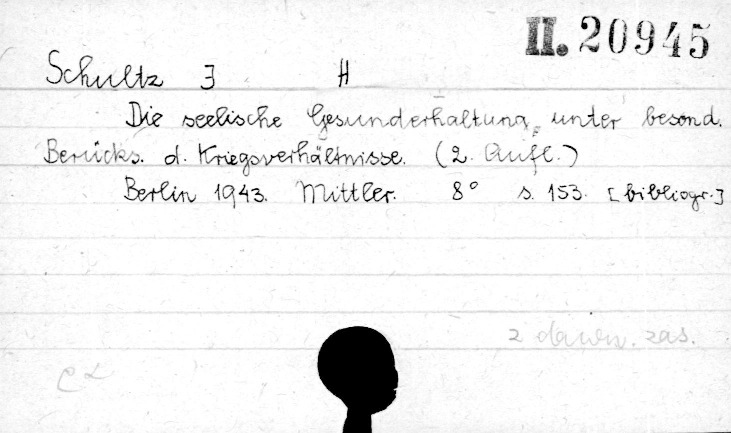 II. 20945
Schultz J H
Die seelische Gesunderhaltung unter besond.
Berücks. d. Kriegsverhältnisse. (2. Aufl.)
Berlin 1943. Mittler. 8° s. 153. [bibliogr.]
z dawn. zas.